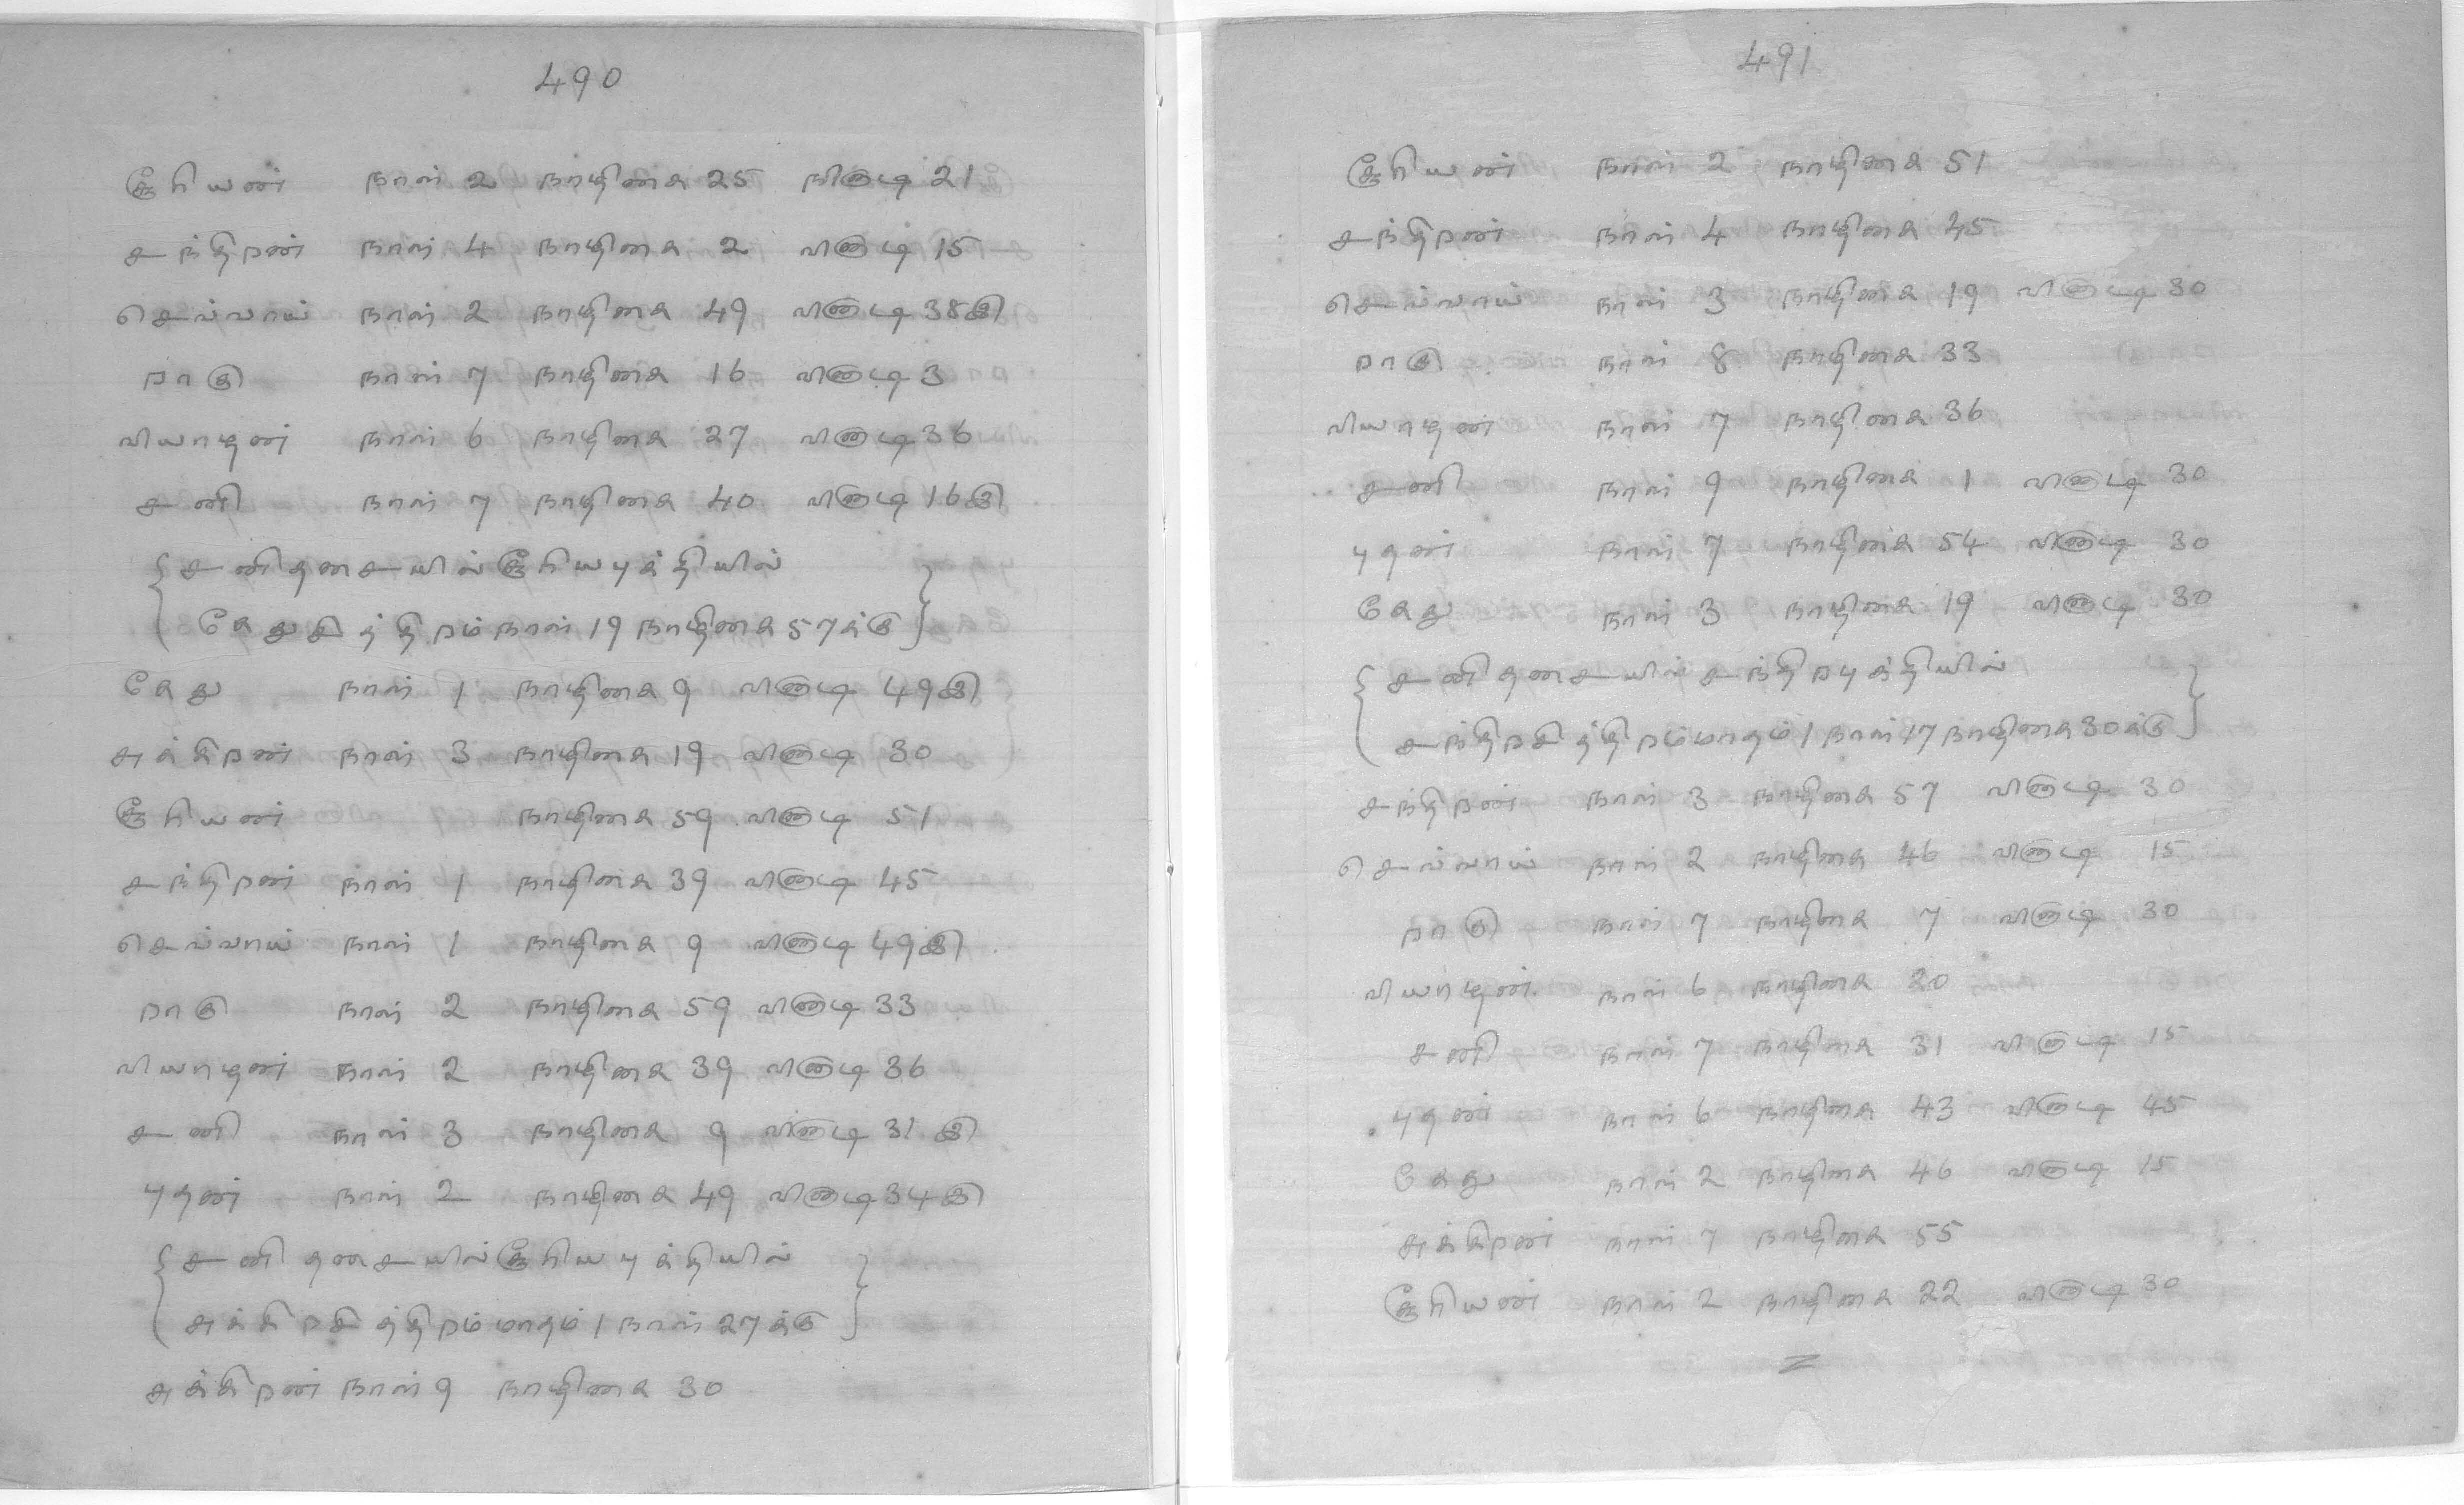 490
சூரியன் நாள் 2 நாழிகை 25 விநாடி 21
சந்திறன் நாள் 4 நாழிகை 2 விநாடி 15
செவ்வாய் நாள் 2 நாழிகை 49 விநாடி 38இ
றாகு நாள் 7 நாழிகை 16 விநாடி 3
வியாழன் நாள் 6 நாழிகை 27 விநாடி 36
சனி நாள் 7 நாழிகை 40 விநாடி 16இ
{ சனி தசையில் சூரிய புக்தியில்
கேது சித்திறம் நாள் 19 நாழிகை 57க்கு }
கேது நாள் 1 நாழிகை 9 விநாடி 49இ
சுக்கிறன் நாள் 3 நாழிகை 19 விநாடி 30
சூரியன் நாழிகை 59 விநாடி 51
சந்திறன் நாள் 1 நாழிகை 39 விநாடி 45
செவ்வாய் நாள் 1 நாழிகை 9 விநாடி 49இ
றாகு நாள் 2 நாழிகை 59 விநாடி 33
வியாழன் நாள் 2 நாழிகை 39 விநாடி 36
சனி நாள் 3 நாழிகை 9 விநாடி 31இ
புதன் நாள் 2 நாழிகை 49 விநாடி 34இ
{ சனி தசையில் சூரிய புக்தியில்
சுக்கிறசித்திறம் மாதம் 1 நாள் 27க்கு }
சுக்கிறன் நாள் 9 நாழிகை 30
491
சூரியன் நாள் 2 நாழிகை 51
சந்திறன் நாள் 4 நாழிகை 45
செவ்வாய் நாள் 3 நாழிகை 19 விநாடி 30
றாகு நாள் 8 நாழிகை 33
வியாழன் நாள் 7 நாழிகை 36
சனி நாள் 9 நாழிகை 1 விநாடி 30
புதன் நாள் 7 நாழிகை 54 விநாடி 30
கேது நாள் 3 நாழிகை 19 விநாடி 30
{ சனி தசையில் சந்திறபுக்தியில்
சந்திறசித்திறம் மாதம் 1 நாள் 17 நாழிகை 30க்கு }
சந்திறன் நாள் 3 நாழிகை 57 விநாடி 30
செவ்வாய் நாள் 2 நாழிகை 46 விநாடி 15
றாகு நாள் 7 நாழிகை 7 விநாடி 30
வியாழன் நாள் 6 நாழிகை 20
சனி நாள் 7 நாழிகை 31 விநாடி 15
புதன் நாள் 6 நாழிகை 43 விநாடி 45
கேது நாள் 2 நாழிகை 46 விநாடி 15
சுக்கிறன் நாள் 7 நாழிகை 55
சூரியன் நாள் 2 நாழிகை 22 விநாடி 30